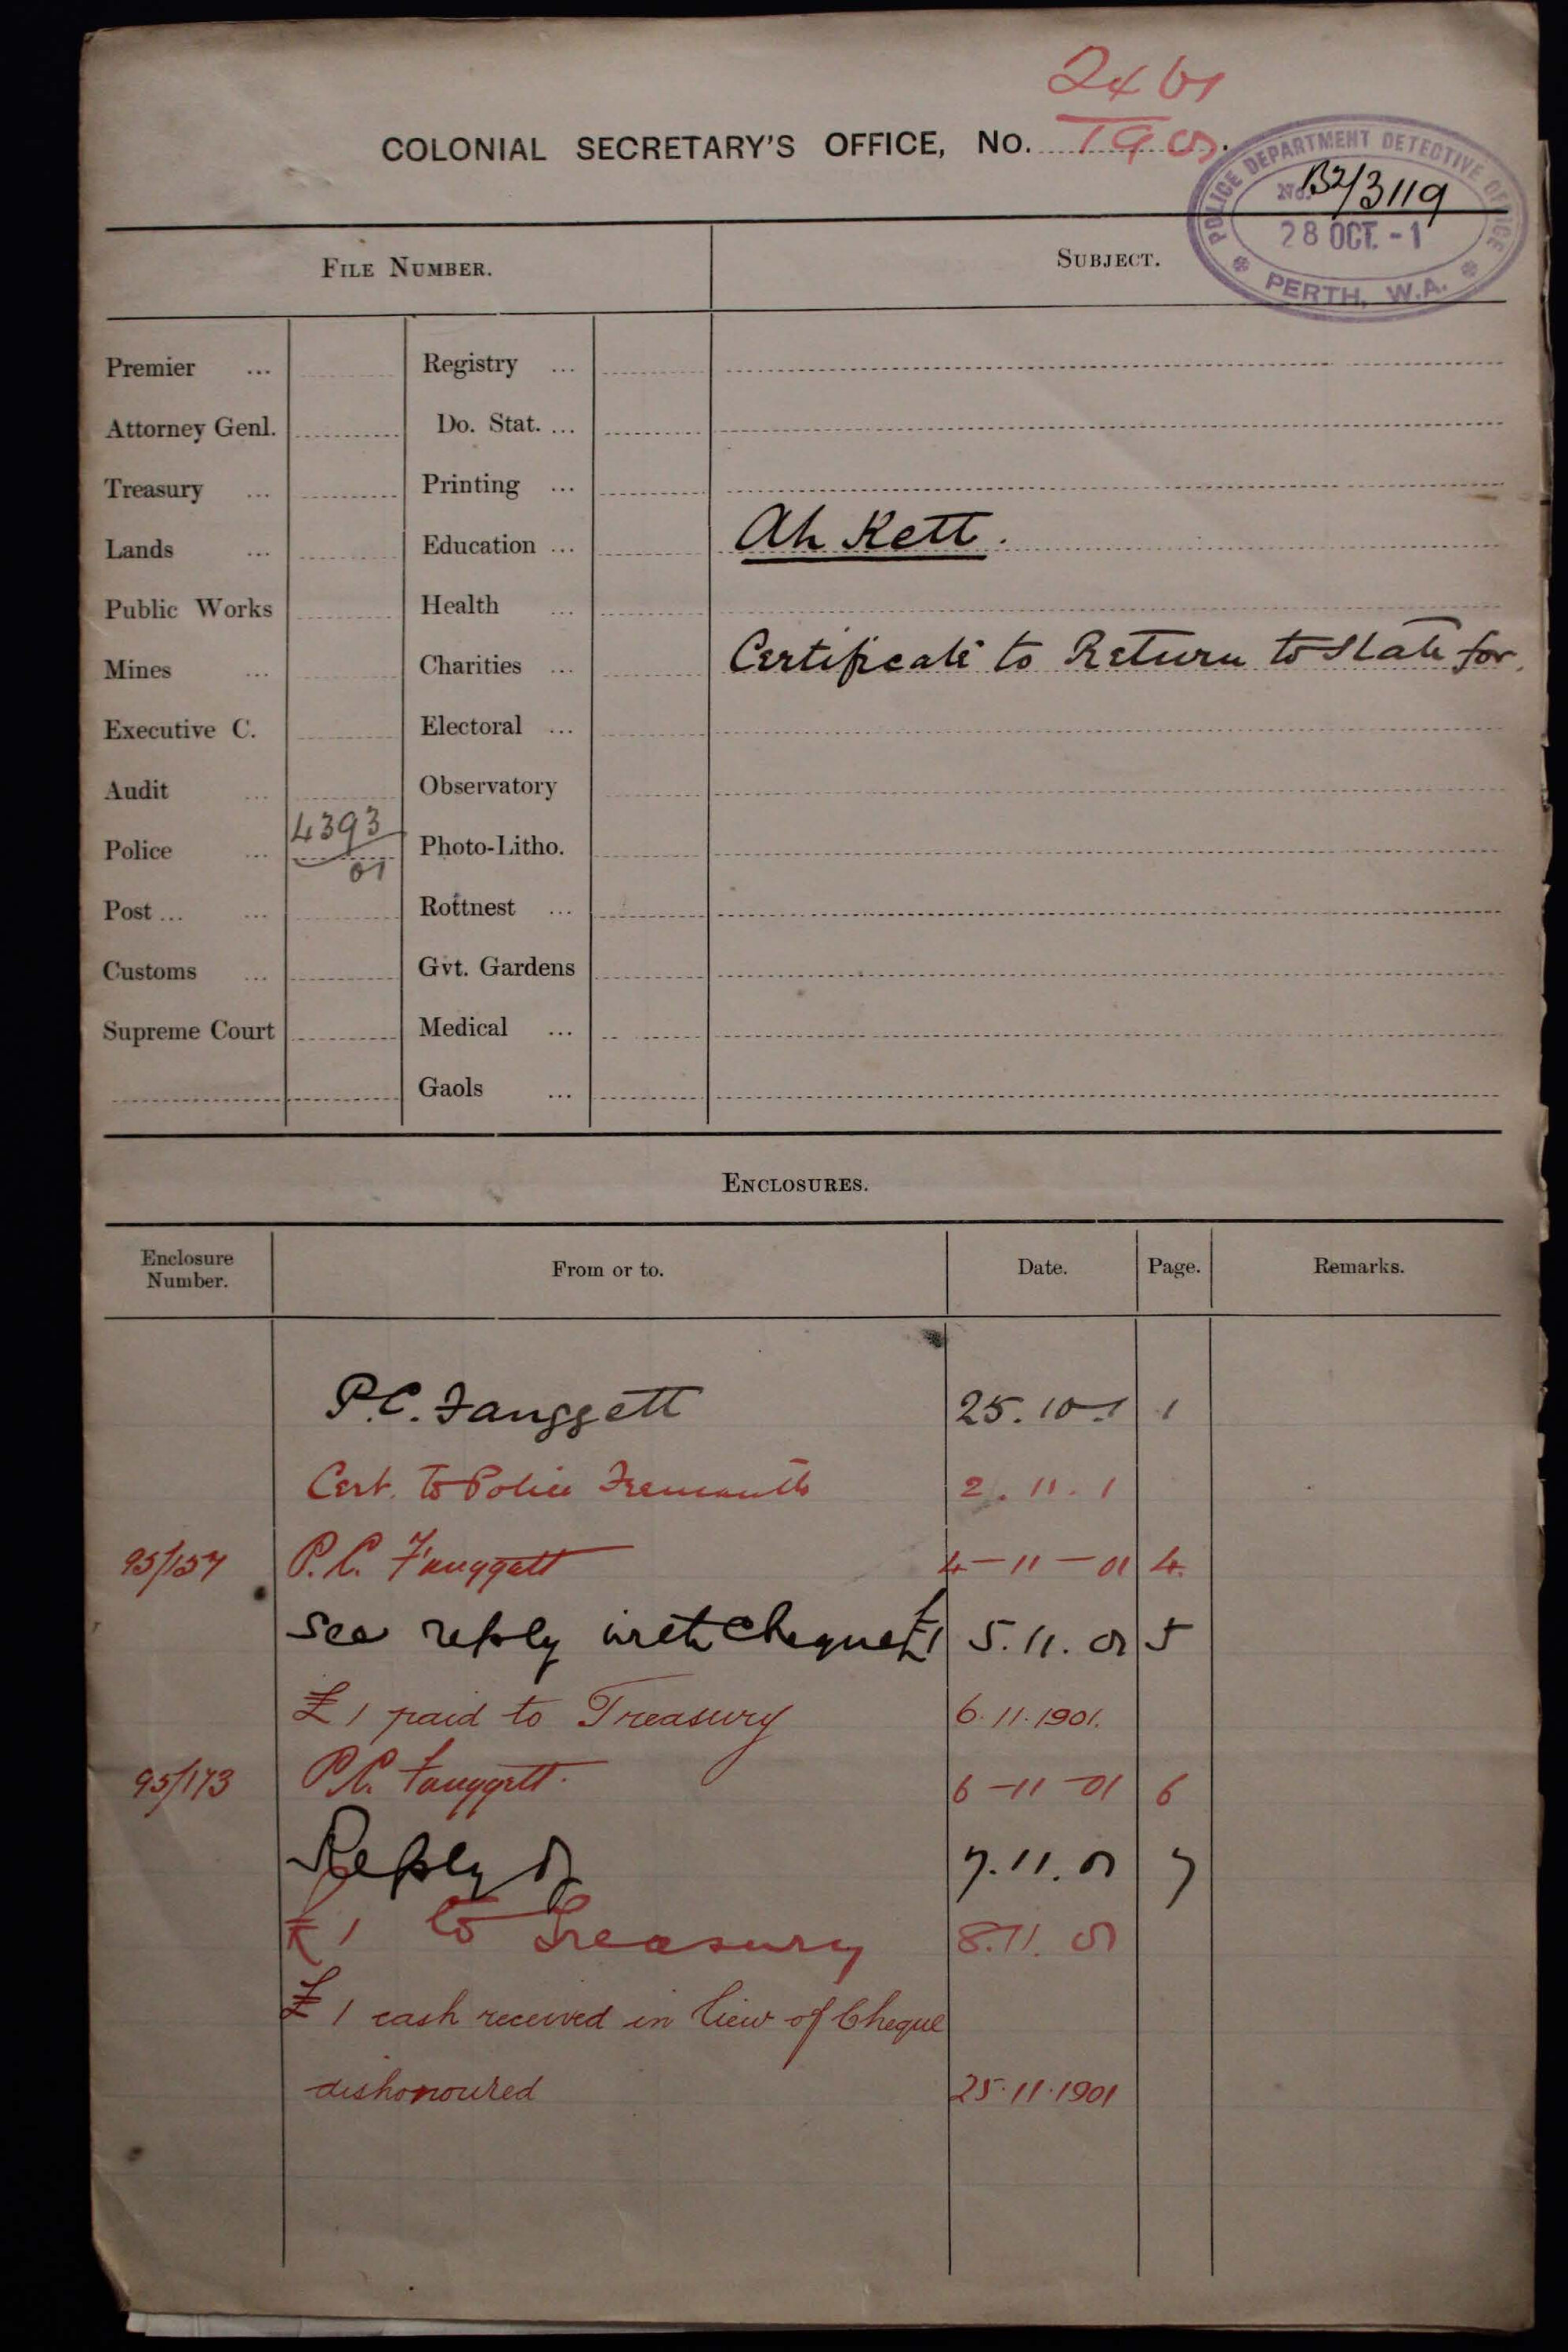 COLONIAL SECRETARY'S OFFICE, No.
POLICE DEPARTMENT DETECTIVE OFFICE
No. B2/3119
28 OCT. - 1
PERTH, W.A.
FILE NUMBER. SUBJECT.
Premier ... Registry ...
Attorney Genl. Do. Stat. ...
Treasury ... Printing ...
Lands ... Education ... Ah Kett.
Public Works Health ...
Mines ... Charities ... Certificate to Return to State for
Executive C. Electoral ...
Audit ... Observatory
Police ... 4393/01 Photo-Litho.
Post ... ... Rottnest ...
Customs ... Gvt. Gardens
Supreme Court Medical ...
Gaols ...
ENCLOSURES.
Enclosure Number. From or to. Date. Page. Remarks.
P.C. Fanggett 25.10.1 1
Cert. to Police Fremantle 2.11.1
95/157 P.C. Fanggett 4-11-01 4.
See reply with Cheque £1 5.11.01 5
£1 paid to Treasury 6.11.1901.
95/173 P.C. Fanggett. 6-11-01 6
Reply 7.11.01 7
£1 to Treasury 8.11.01
£1 cash received in lieu of Cheque
dishonoured 25.11.1901